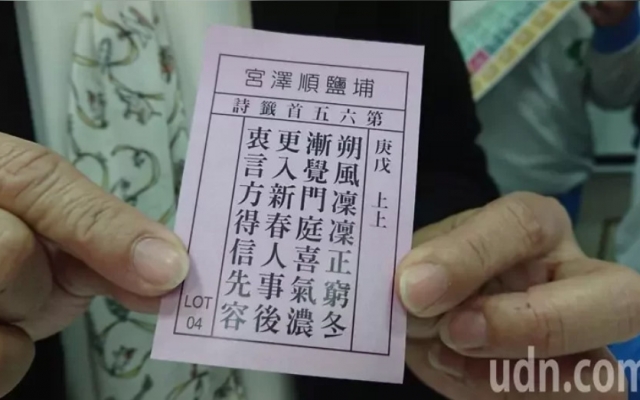 埔鹽順澤宮
第六五首籤詩
庚戌 上上
朔風凜凜正窮冬
漸覺門庭喜氣濃
更入新春人事後
衷言方得信先容
LOT
04
udn.com